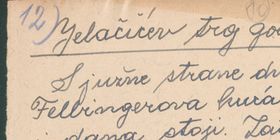 12) Jelačićev trg go
S južne strane
Felbingerova kurá
dana stoji.